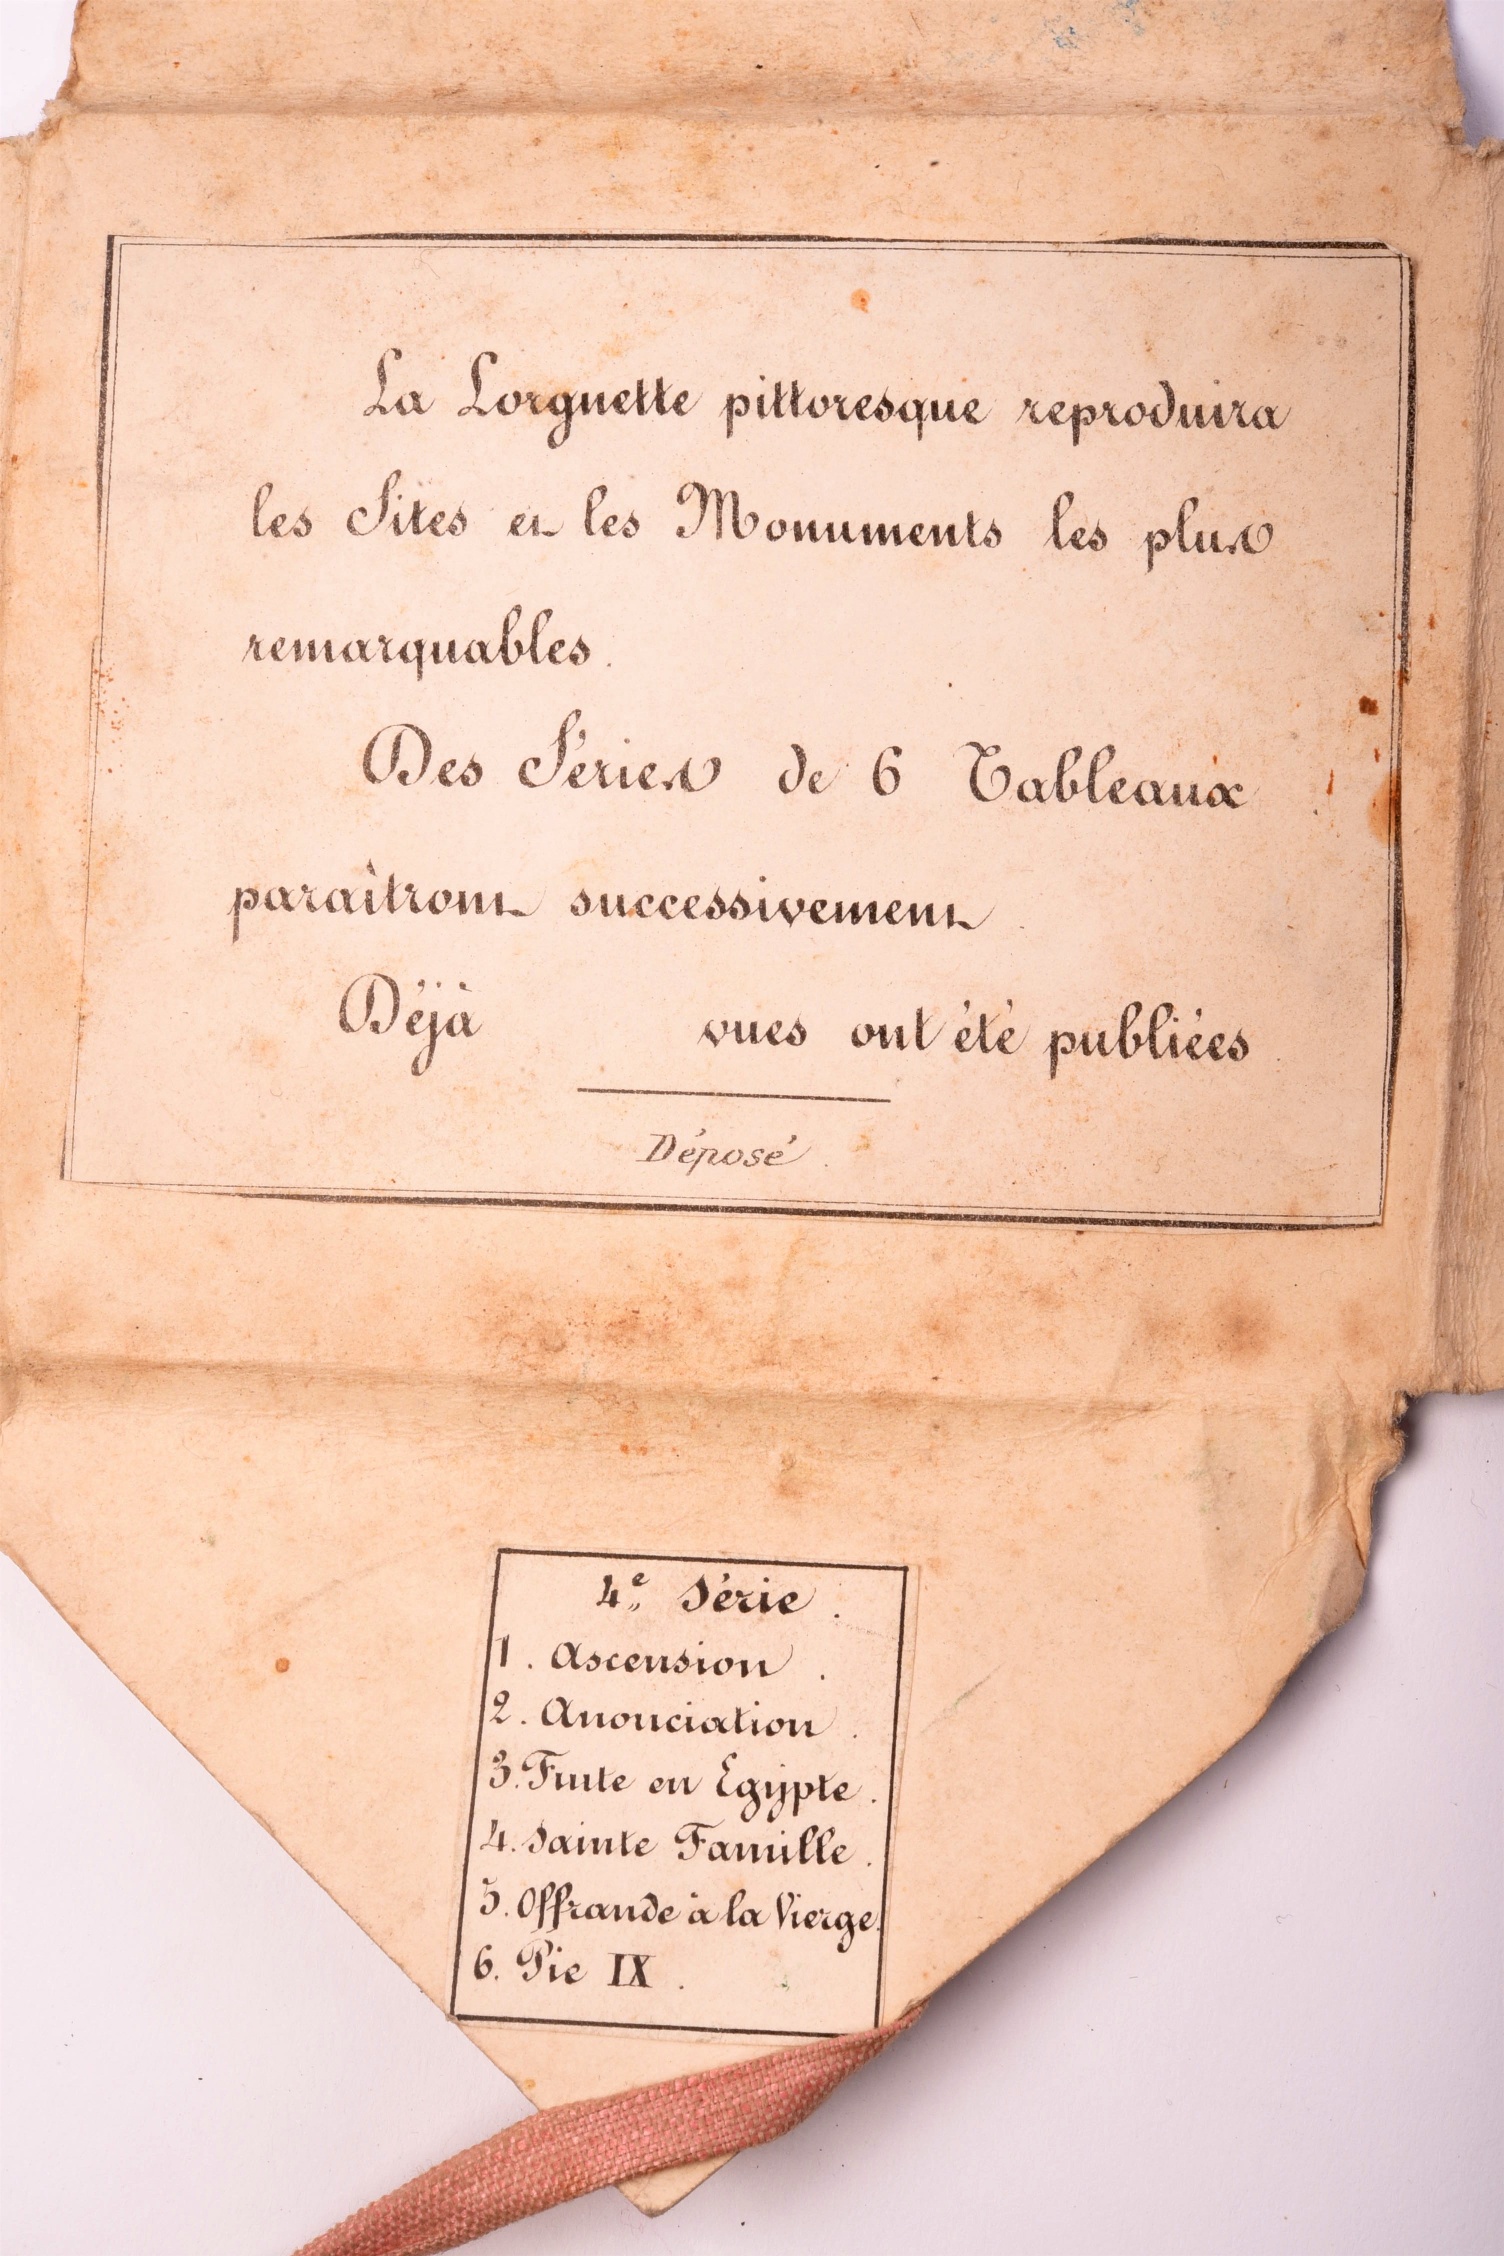 La Lorgnette pittoresque reproduira
les Sites et les Monuments les plus
remarquables.
Des Séries de 6 Tableaux
paraîtront successivement
Déjà vues ont été publiées
Déposé.
4e Série.
1. Ascension.
2. Anonciation.
3. Fuite en Egypte.
4. Sainte Famille.
5. Offrande à la Vierge.
6. Pie IX.